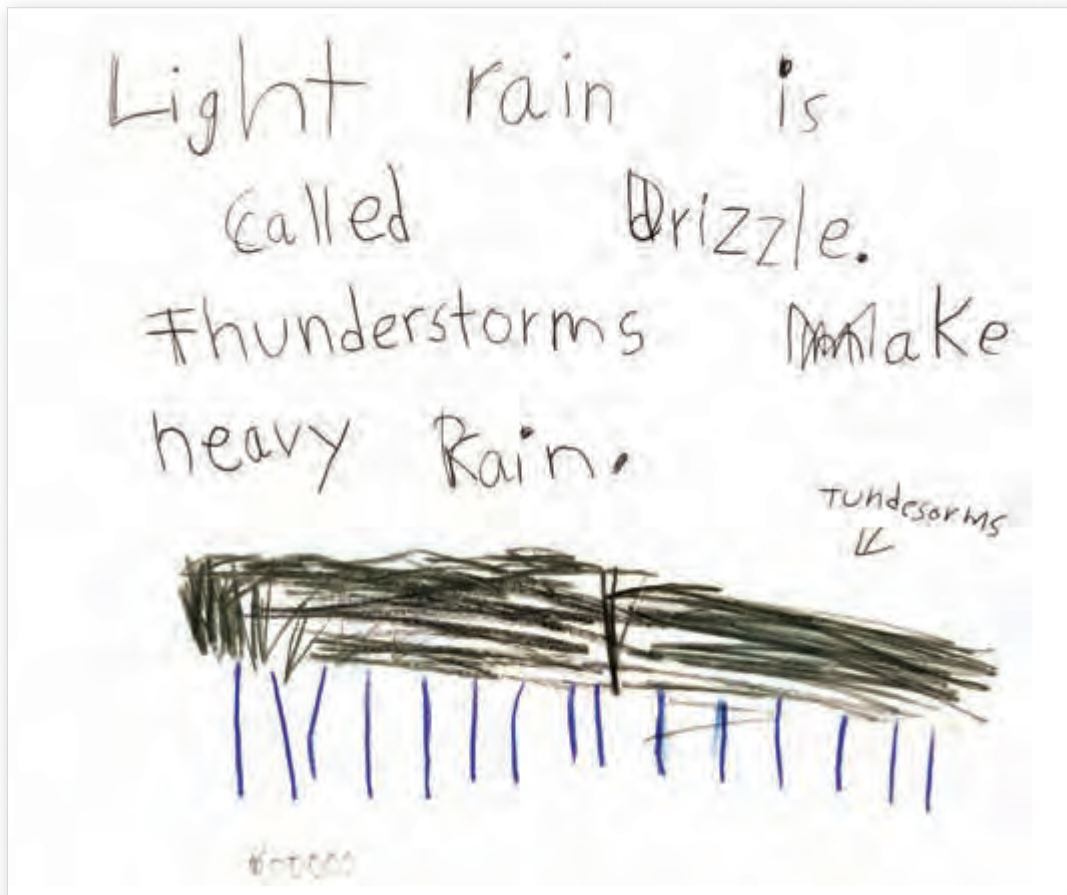 Light rain is
called Drizzle.
Thunderstorms make
heavy Rain.
Tundesorms